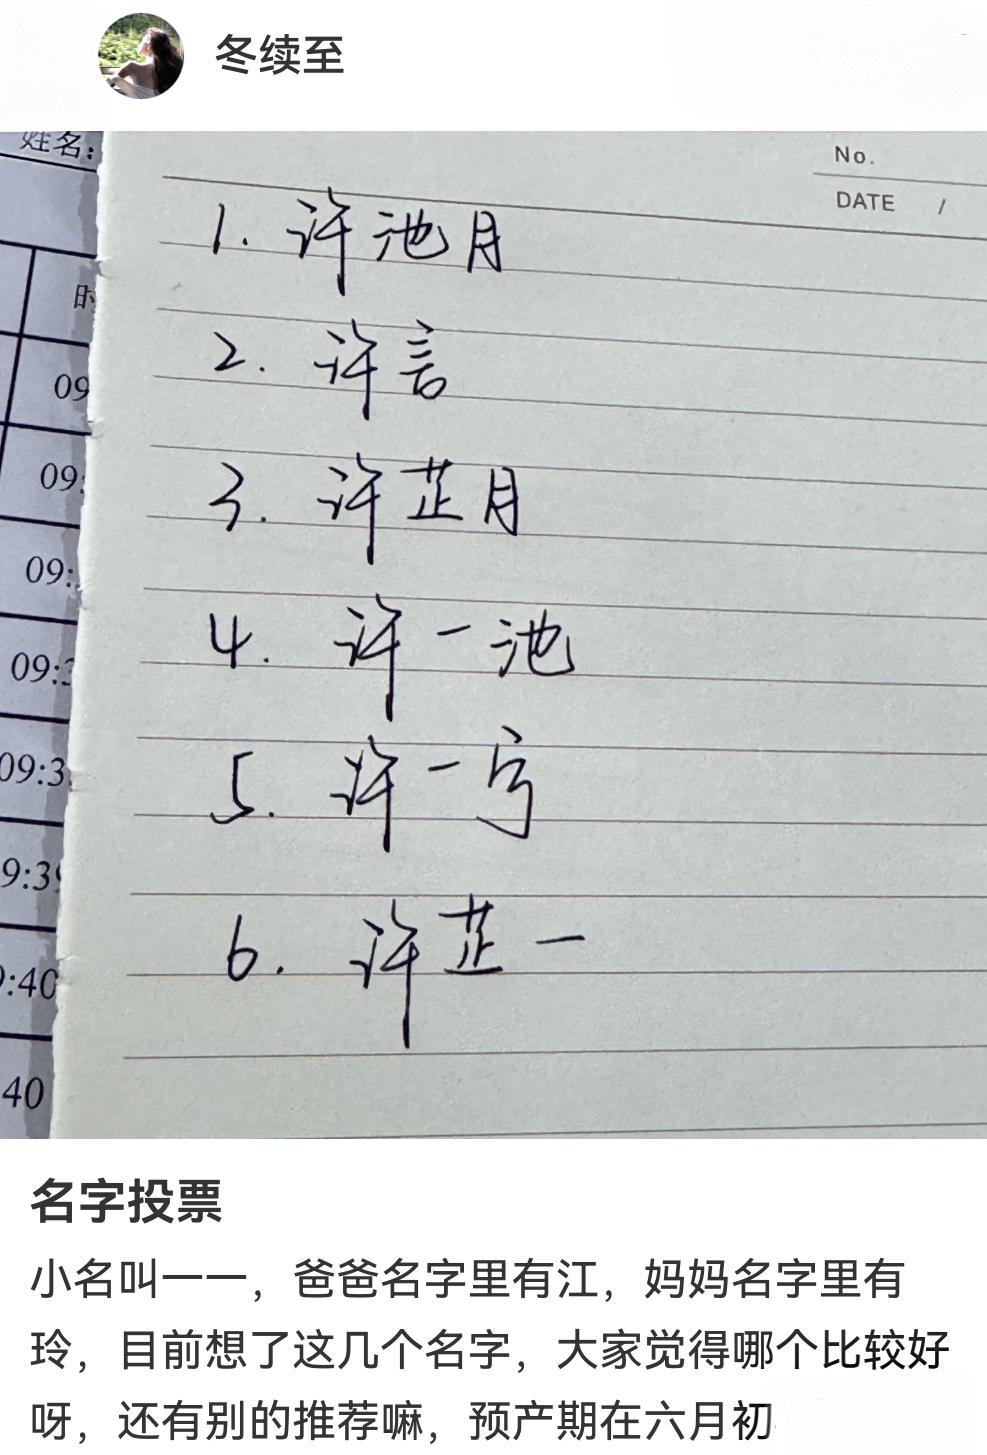 冬续至
姓名:
No.
DATE /
1. 许池月
时
2. 许言
09
3. 许芷月
09:
09:
4. 许一池
09:3
5. 许一兮
09:3
9:39
6. 许芷一
9:40
40
名字投票
小名叫一一，爸爸名字里有江，妈妈名字里有
玲，目前想了这几个名字，大家觉得哪个比较好
呀，还有别的推荐嘛，预产期在六月初